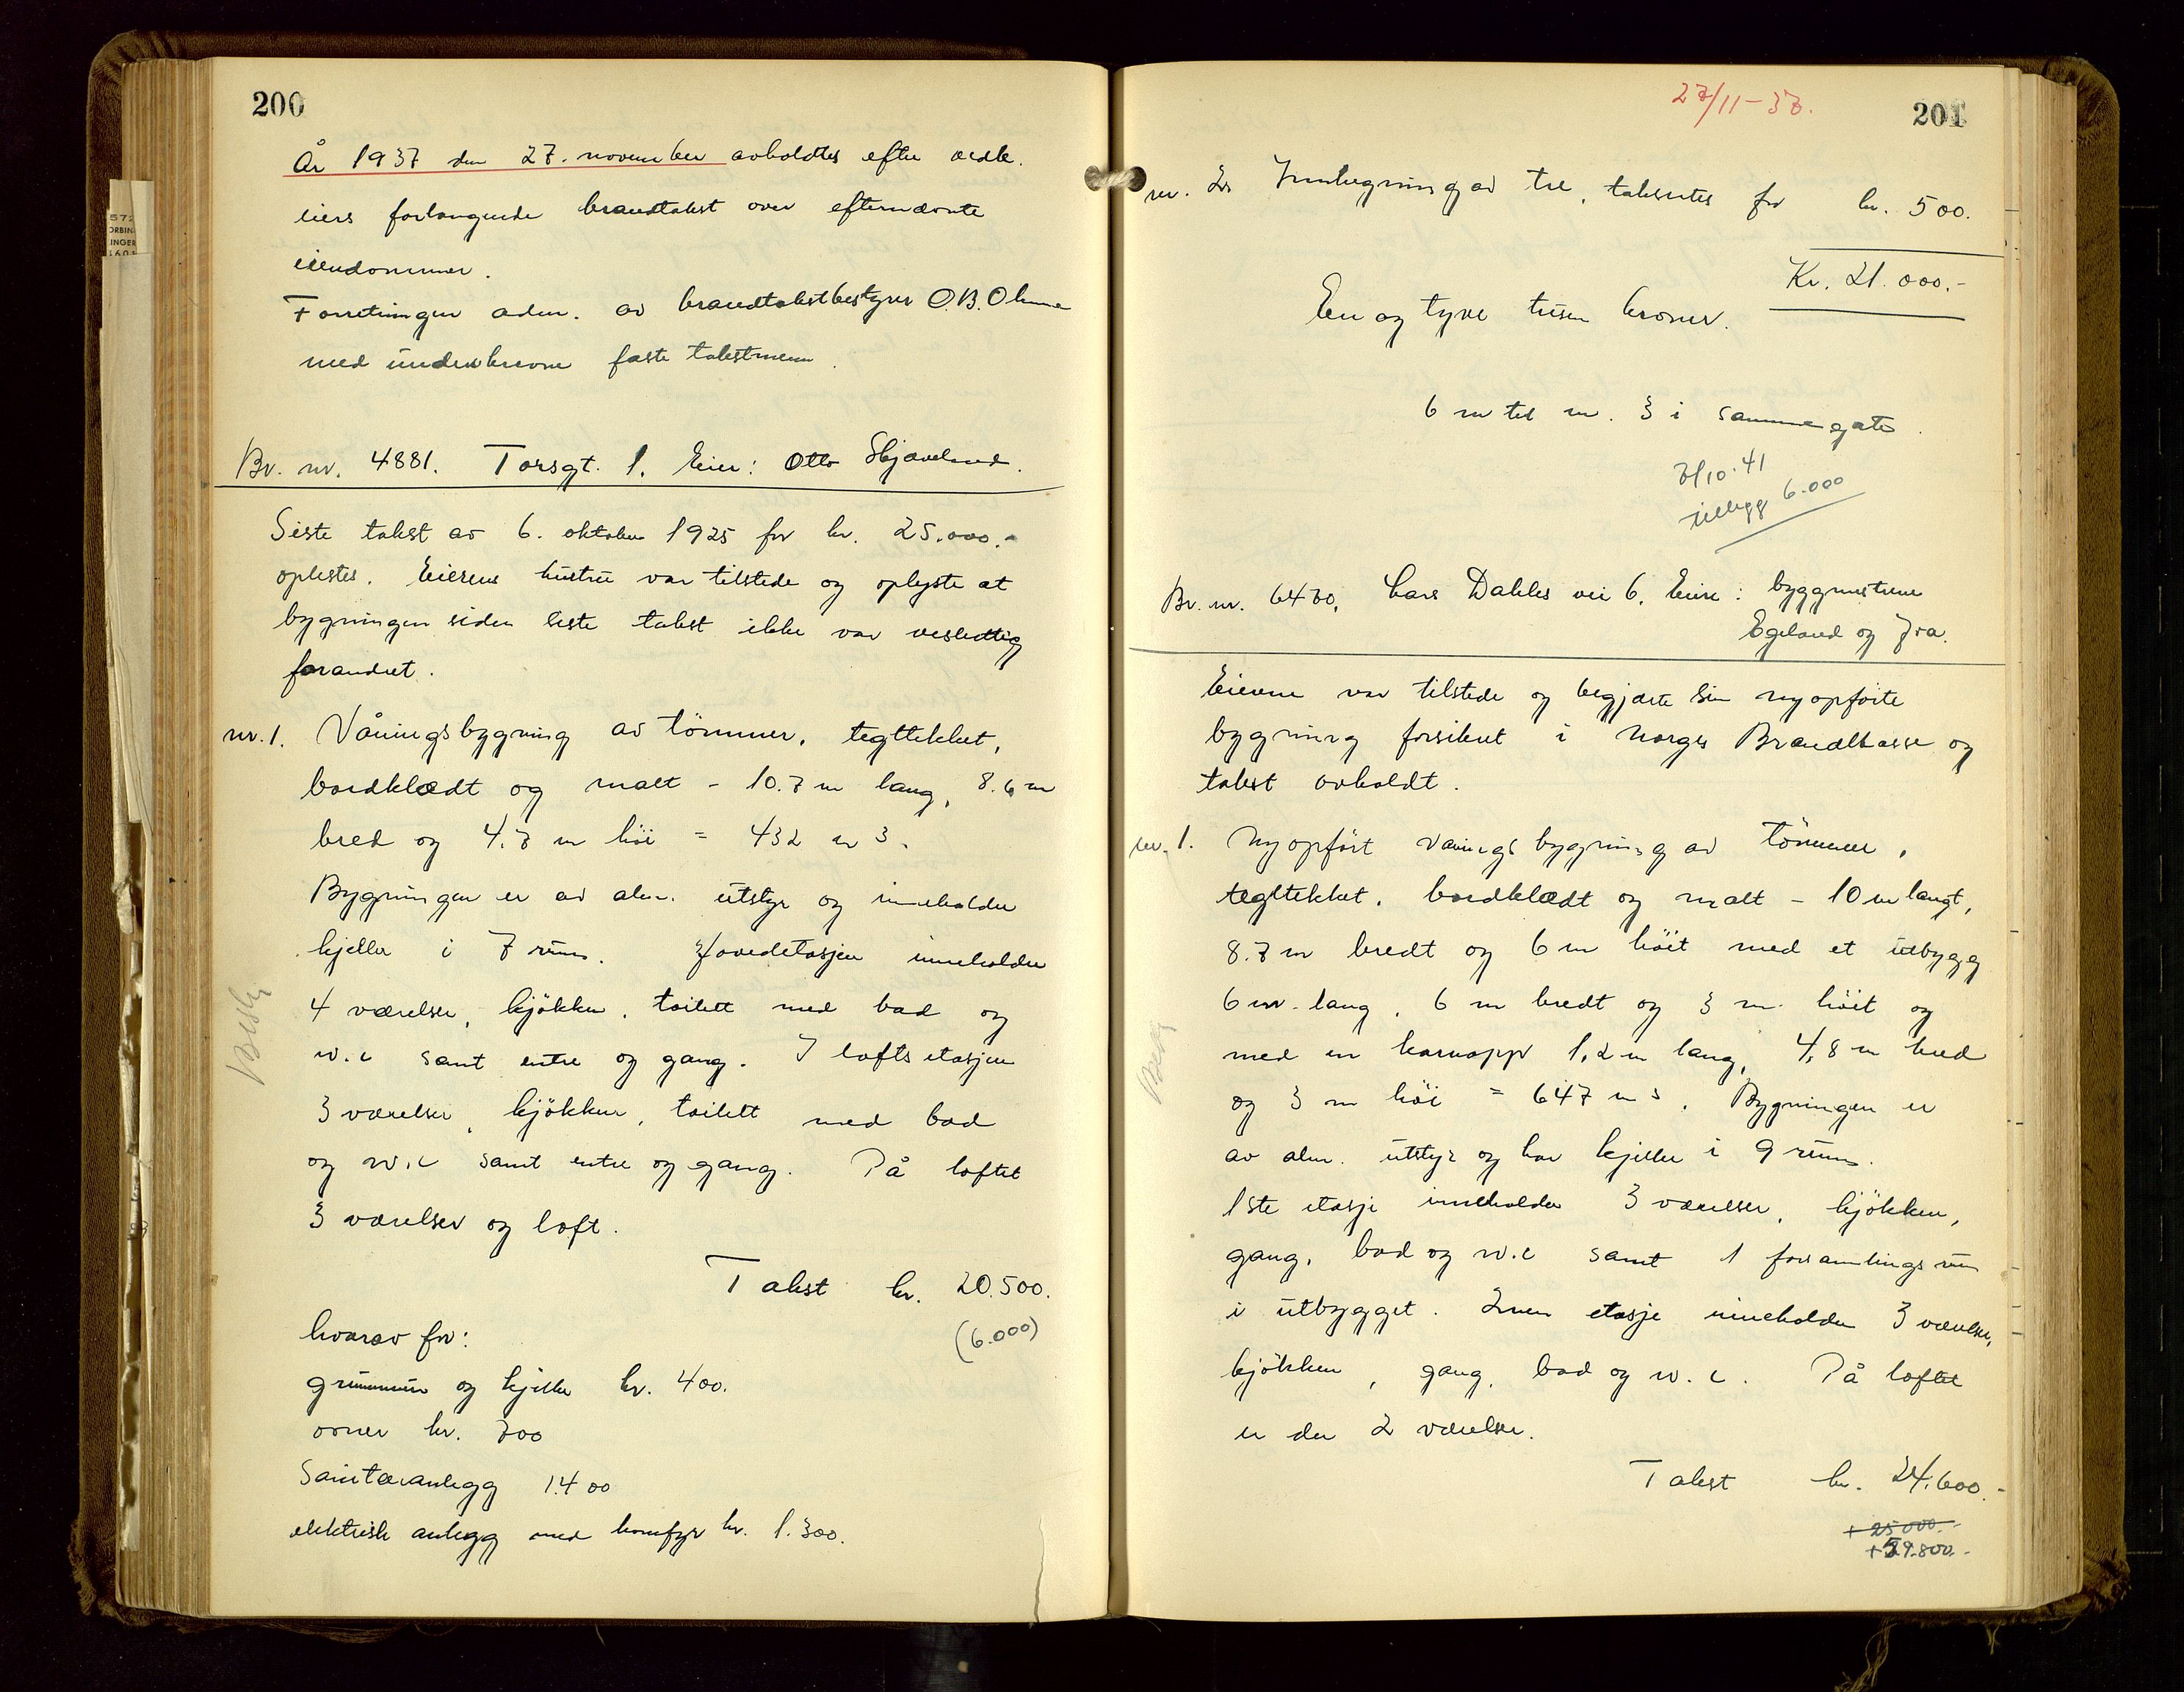 200
År 1937 den 27. november avholdtes efter vedk.
eiers forlangende brandtakst over efternævnte
eiendommer.
Forretningen adm. av brandtakstbestyrer O.B. Ohma
med underskrevne faste takstmenn.
Br. nr. 4881. Torsgt. 1. Eier: Otto Skjæveland.
Siste takst av 6. oktober 1925 for kr. 25.000.-
oplestes. Eierens hustru var tilstede og oplyste at
bygningen siden siste takst ikke var vesentlig
forandret.
nr. 1. Våningsbygning av tömmer, tegltekket,
bordklædt og malt - 10.7 m lang, 8.6 m
bred og 4.7 m höi = 432 m3.
Bygningen er av alm. utstyr og inneholder
kjeller i 7 rum. Hovedetasjen inneholder
4 værelser, kjökken, toilett med bad og
w.c samt entre og gang. I loftsetasjen
3 værelser, kjökken, toilett med bad
og w.c samt entre og gang. På loftet
3 værelser og loft.
Takst kr. 20.500.
(6.000)
hvorav for:
grunnmur og kjeller kr. 400.
ovner kr. 700
Sanitæranlegg 1.400
elektrisk anlegg med komfyr kr. 1.300.
27/11-37.
201
nr. 2. Innhegning av tre, takseres for kr. 500.
Kr. 21.000.-
En og tyve tusen kroner.
6 m til nr. 3 i samme gate.
7/10-41
tillegg 6.000
Br. nr. 6470. Lars Dahles vei 6. Eiere: byggmestrene
Egeland og Fra.
Eierene var tilstede og begjærte sin nyopförte
bygning forsikret i Norges Brandkasse og
takst avholdt.
nr. 1. Nyopfört våningsbygning av tömmer,
tegltekket, bordklædt og malt - 10 m langt,
8.7 m bredt og 6 m höit med et utbygg
6 m lang, 6 m bredt og 3 m höit og
med en karnapp 1,2 m lang, 4,8 m bred
og 3 m höi = 647 m3. Bygningen er
av alm. utstyr og har kjeller i 9 rum.
1ste etasje inneholder 3 værelser, kjökken,
gang, bad og w.c samt 1 forsamlingsrum
i utbygget. 2nen etasje inneholder 3 værelser,
kjökken, gang, bad og w.c. På loftet
er der 2 værelser.
Takst kr. 24.600.-
+ 25000.-
+ 59.800.-